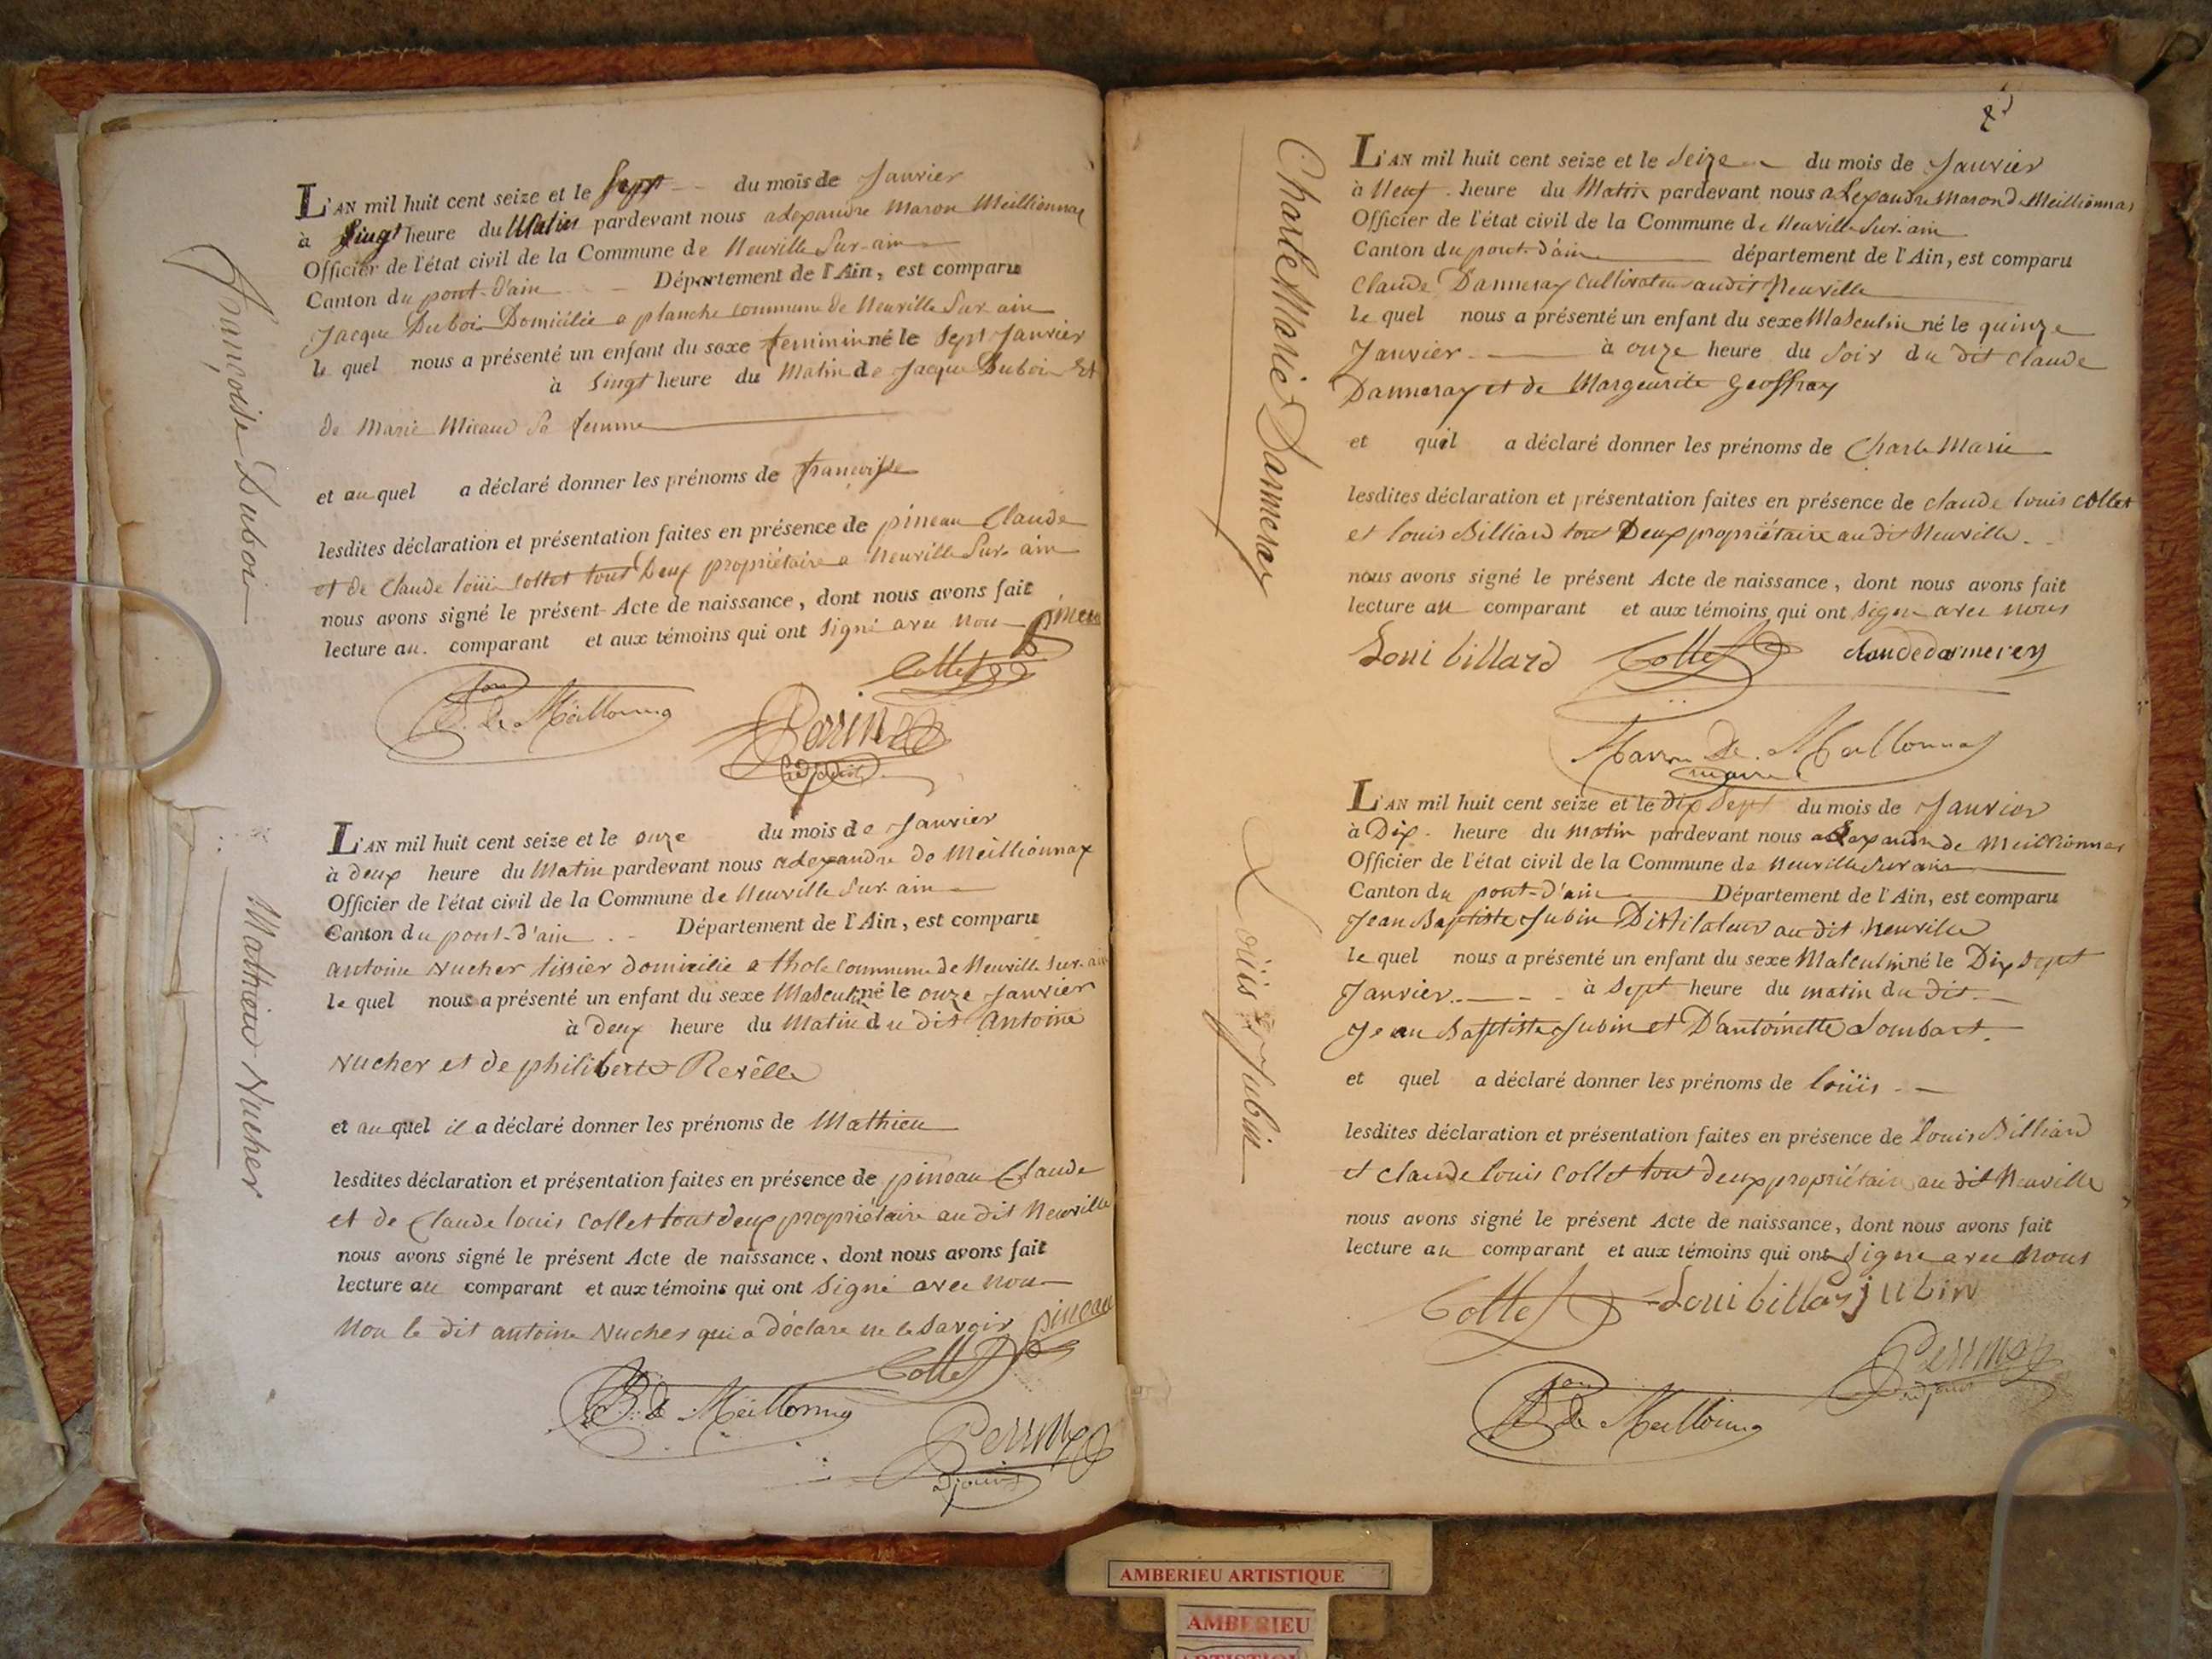 Françoise Duboi
L'AN mil huit cent seize et le Sept du mois de Janvier
à heure du Matin pardevant nous alexandre maron Meillionnas
Officier de l'état civil de la Commune de Neuville Sur-ain
Canton du pont-d'ain Département de l'Ain, est comparu
Jacque Duboi Domicilié a planche commune de Neuville Sur ain
le quel nous a présenté un enfant du sexe feminin né le Sept Janvier
à heure du Matin de Jacque Duboi Et
de Marie Micaud Sa femme
et au quel a déclaré donner les prénoms de françoisse
lesdites déclaration et présentation faites en présence de pineau Claude
et de Claude loüi Collet tout Deux propriétaire a Neuville Sur ain
nous avons signé le présent Acte de naissance, dont nous avons fait
lecture au comparant et aux témoins qui ont signé avec nou pineau
Collet
B. de Meillonnas
Perrin
adjoint
Mathieu Nucher
L'AN mil huit cent seize et le onze du mois de Janvier
à deux heure du Matin pardevant nous alexandre de Meillionnax
Officier de l'état civil de la Commune de Neuville Sur ain
Canton du pont-d'ain Département de l'Ain, est comparu
antoine Nucher tissier domicilié a thole commune de Neuville Sur-ain
le quel nous a présenté un enfant du sexe Masculin né le onze Janvier
à deux heure du Matin du dit Antoine
Nucher et de philiberte Revêlle
et au quel il a déclaré donner les prénoms de Mathieu
lesdites déclaration et présentation faites en présence de pineau Claude
et de Claude louis Collet tout deux propriétaire au dit Neuville
nous avons signé le présent Acte de naissance, dont nous avons fait
lecture au comparant et aux témoins qui ont Signé avec nou
Nou le dit antoine Nucher qui a déclaré ne le Savoir pineau
Collet
B. de Meillonnas
Perrin
adjoint
Charle Marie Danneray
L'AN mil huit cent seize et le Seize du mois de Janvier
à Neuf heure du Matin pardevant nous alexandre Maron de Meillionnas
Officier de l'état civil de la Commune de Neuville Sur-ain
Canton du pont-d'ain département de l'Ain, est comparu
Claude Danneray Cultivateur audit Neuville
le quel nous a présenté un enfant du sexe Masculin né le quinze
Janvier à onze heure du Soir du dit Claude
Danneray et de Margeurite Geoffray
et quil a déclaré donner les prénoms de Charle Marie
lesdites déclaration et présentation faites en présence de claude louis collet
et louis Billiard tout Deux propriétaire au dit Neuville
nous avons signé le présent Acte de naissance, dont nous avons fait
lecture au comparant et aux témoins qui ont signé avec nous
Loui billard Collet claude darmerey
Maron De Meillonnas
maire
Loüis Jubin
L'AN mil huit cent seize et le dix Sept du mois de Janvier
à Dix heure du matin pardevant nous alexandre de Meillionnas
Officier de l'état civil de la Commune de Neuville Sur ain
Canton du pont-d'ain Département de l'Ain, est comparu
Jean Baptiste Jubin Distilateur au dit Neuville
le quel nous a présenté un enfant du sexe Masculin né le Dix Sept
Janvier à Sept heure du matin du dit
Jean Baptiste Jubin et D'antoinette Lombart
et quel a déclaré donner les prénoms de loüis
lesdites déclaration et présentation faites en présence de louis Billiard
et claude louis collet tout deux propriétaire au dit Neuville
nous avons signé le présent Acte de naissance, dont nous avons fait
lecture au comparant et aux témoins qui ont signé avec nous
Collet Loui billard jubin
Perrin
adjoint
B. de Meillonnas
AMBERIEU ARTISTIQUE
AMBERIEU
ARTISTIQUE